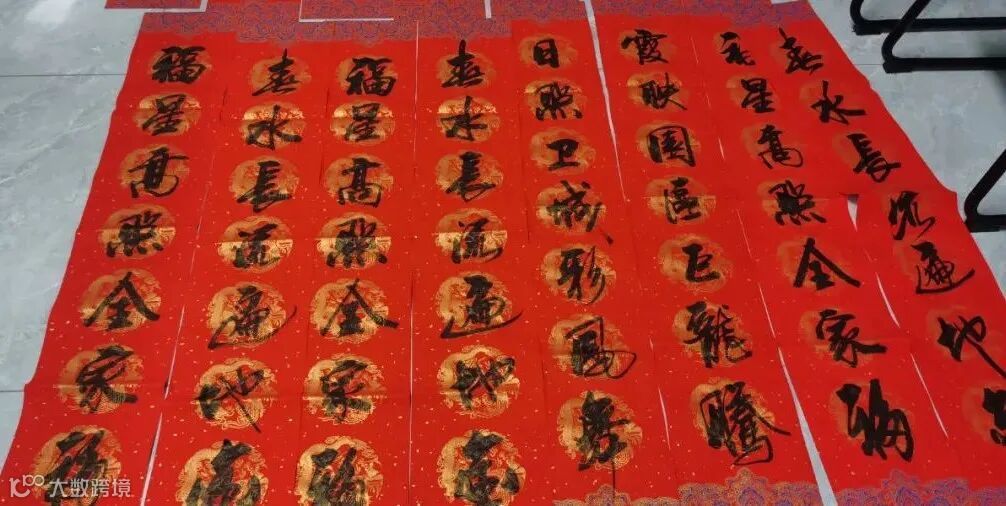 春水長流遍地
星高照全家福
霞映園區巨龍騰
日照卫城彩鳳舞
春水長流遍地春
福星高照全家福
春水長流遍地春
福星高照全家福
大数跨境